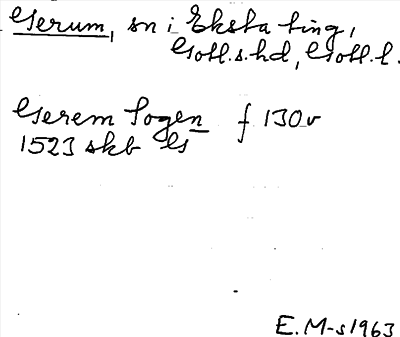 Gerum, sn i Eksta ting,
Gotl.s.hd, Gotl.l.
Gerem sogen f 130v
1523 skb G
E.M-s 1963